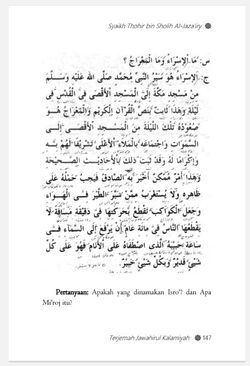 Syaikh Thohir bin Sholih Al-Jaza'iry
س: مَا الْإِسْرَاءُ وَمَا الْمِعْرَاجُ ؟
ج: الْإِسْرَاءُ هُوَ سَيْرُ النَّبِيِّ مُحَمَّدٍ صَلَّى اللهُ عَلَيْهِ وَسَلَّمَ
مِنْ مَسْجِدِ مَكَّةَ إِلَى الْمَسْجِدِ الْأَقْصَى فِي
لَيْلَةٍ وَهَذَا ثَابِتٌ بِنَصِّ الْقُرْآنِ الْكَرِيْمِ وَالْمِعْرَاجُ هُوَ
صُعُوْدُهُ تِلْكَ اللَّيْلَةَ مِنَ الْمَسْجِدِ الْأَقْصَى إِلَى
السَّمَوَاتِ وَاجْتِمَاعُهُ بِالْمَلَاءِ الْأَعْلَى تَشْرِيْفًا لَهُمْ بِهِ
وَإِكْرَامًا لَهُ وَقَدْ ثَبَتَ ذَلِكَ بِالْأَحَادِيْثِ الصَّحِيْحَةِ
وَهَذَا أَمْرٌ مُمْكِنٌ أَخْبَرَ بِهِ الصَّادِقُ فَيَجِبُ حَمْلُهُ عَلَى
ظَاهِرِهِ وَلَا يُسْتَغْرَبُ مِمَّنْ سَيَّرَ الطَّيْرَ فِي الْهَوَاءِ
وَجَعَلَ الْكَوَاكِبَ تَقْطَعُ بِحَرَكَتِهَا فِي دَقِيْقَةٍ مَسَافَةً لَا
يَقْطَعُهَا النَّاسُ فِي مِائَةِ عَامٍ أَنْ يَرْفَعَ إِلَى السَّمَاءِ فِي
سَاعَةٍ حَبِيْبَهُ الَّذِي اصْطَفَاهُ عَلَى الْأَنَامِ فَهُوَ عَلَى كُلِّ
شَيْئٍ قَدِيْرٌ وَبِكُلِّ شَيْئٍ خَبِيْرٌ.
Pertanyaan: Apakah yang dinamakan Isro'? dan Apa
Mi'roj itu?
Terjemah Jawahirul Kalamiyah 147